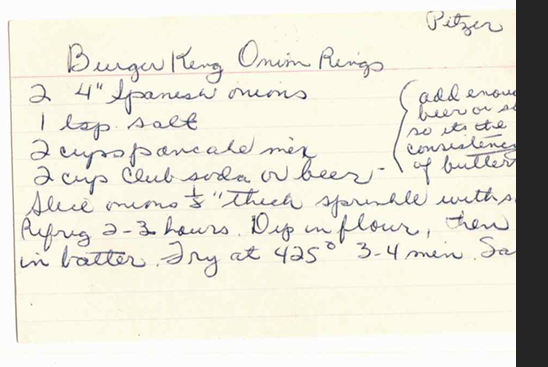 Pitzer
Burger King Onion Rings
2 4" Spanish onions
1 tsp. salt
2 cups pancake mix
2 cup Club soda or beer -
(add enou
beer or s
so its the
consistenc
of butter
Slice onions "thick sprinkle with s
Refrig 2-3 hours. Dip in flour, then
in batter. Fry at 425° 3-4 min. Sa